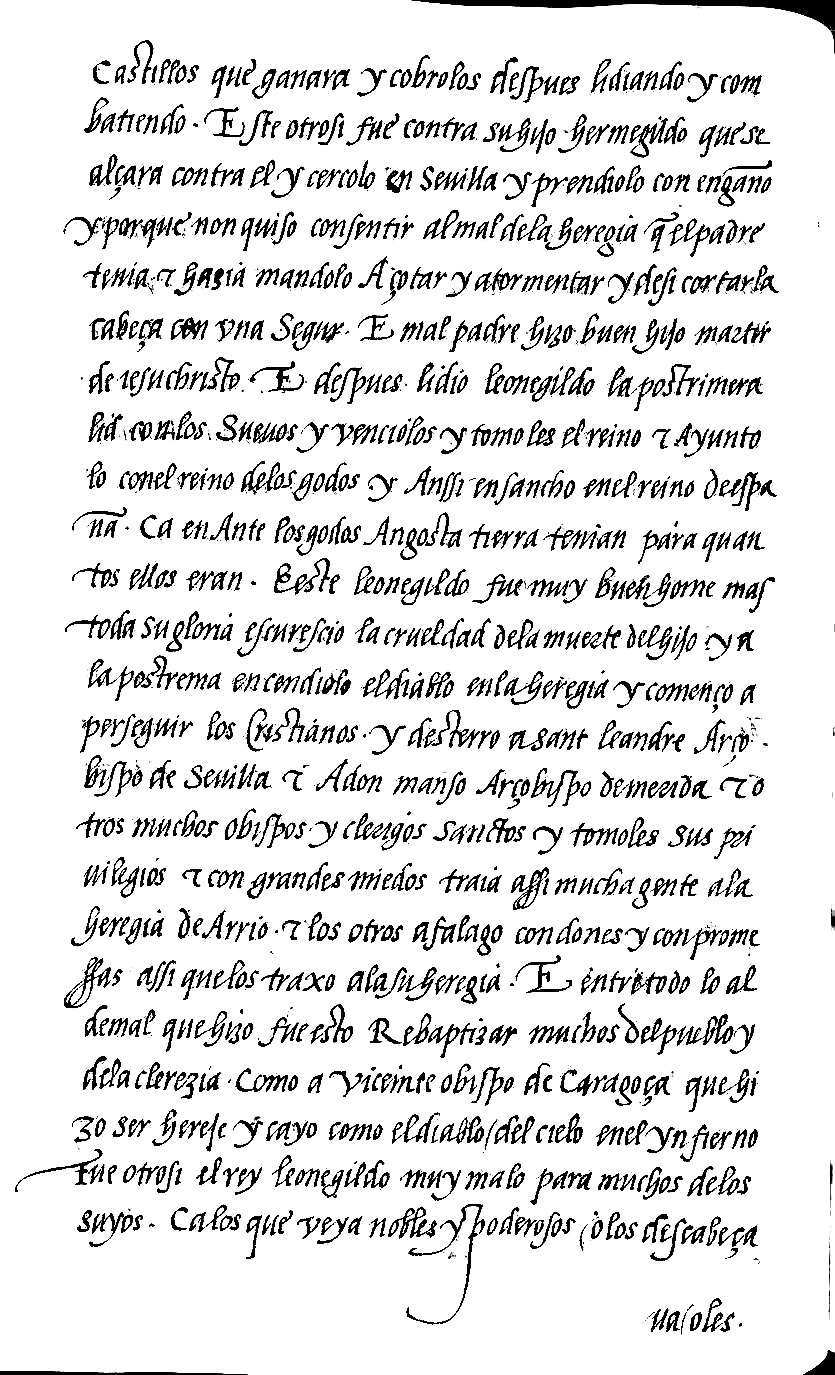 Castillos que ganara y cobrolos despues lidiando y com
batiendo. Este otrosi fue contra su hijo hermegildo que se
alçara contra el y cercolo en Sevilla y prendiolo con engaño
y porque non quiso consentir al mal dela heregia q̃ el padre
tenia τ hazia mandolo Açotar y atormentar y desi cortar la
cabeça con vna Segur. E mal padre hizo buen hijo martir
de iesu christo. E despues lidio leonegildo la postrimera
lid con los Sueuos y venciolos y tomo les el reino τ Ayunto
lo con el reino delos godos y Anssi ensancho enel reino de espa
ña. Ca en Ante los godos Angosta tierra tenian para quan
tos ellos eran. E este leonegildo fue muy buen home mas
toda su gloria escurescio la crueldad dela muerte del hijo y a
la postrema encendiolo el diablo en la heregia y començo a
perseguir los Cristianos. y desterro a sant leandre Arço.
bispo de Sevilla τ A don manso Arçobispo de merida τ o
tros muchos obispos y clerigos sanctos y tomoles sus pri
uilegios τ con grandes miedos traia assi mucha gente ala
heregia de Arrio. τ los otros afalago con dones y con prome
ssas assi que los traxo ala su heregia. E entre todo lo al
de mal que hizo fue esto Rebaptizar muchos del pueblo y
dela clerezia. Como a viceinte obispo de Caragoça que hi
zo ser hereje y cayo como el diablo del cielo enel ynfierno
Fue otrosi el rey leonegildo muy malo para muchos delos
suyos. Ca los que veya nobles y poderosos o los descabeça
ua o les.